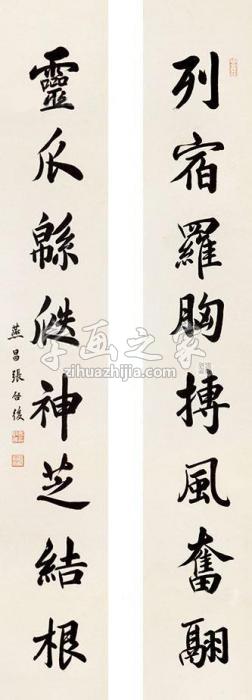 列宿羅胸搏風奮翮
靈瓜緜瓞神芝結根
燕昌張启後
字画之家
zihuazhijia.com